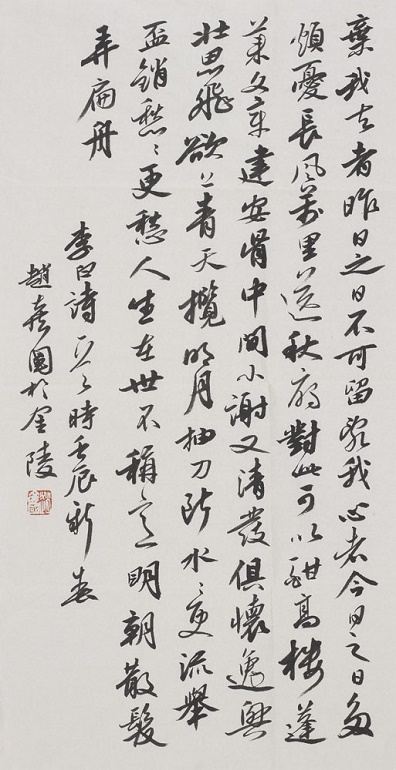 棄我去者昨日之日不可留亂我心者今日之日多
煩憂長風萬里送秋雁對此可以酣高樓蓬
萊文章建安骨中間小謝又清發俱懷逸興
壯思飛欲上青天攬明月抽刀斷水水更流舉
盃銷愁愁更愁人生在世不稱意明朝散髮
弄扁舟
李白詩一首時壬辰新春
趙熹圖於金陵